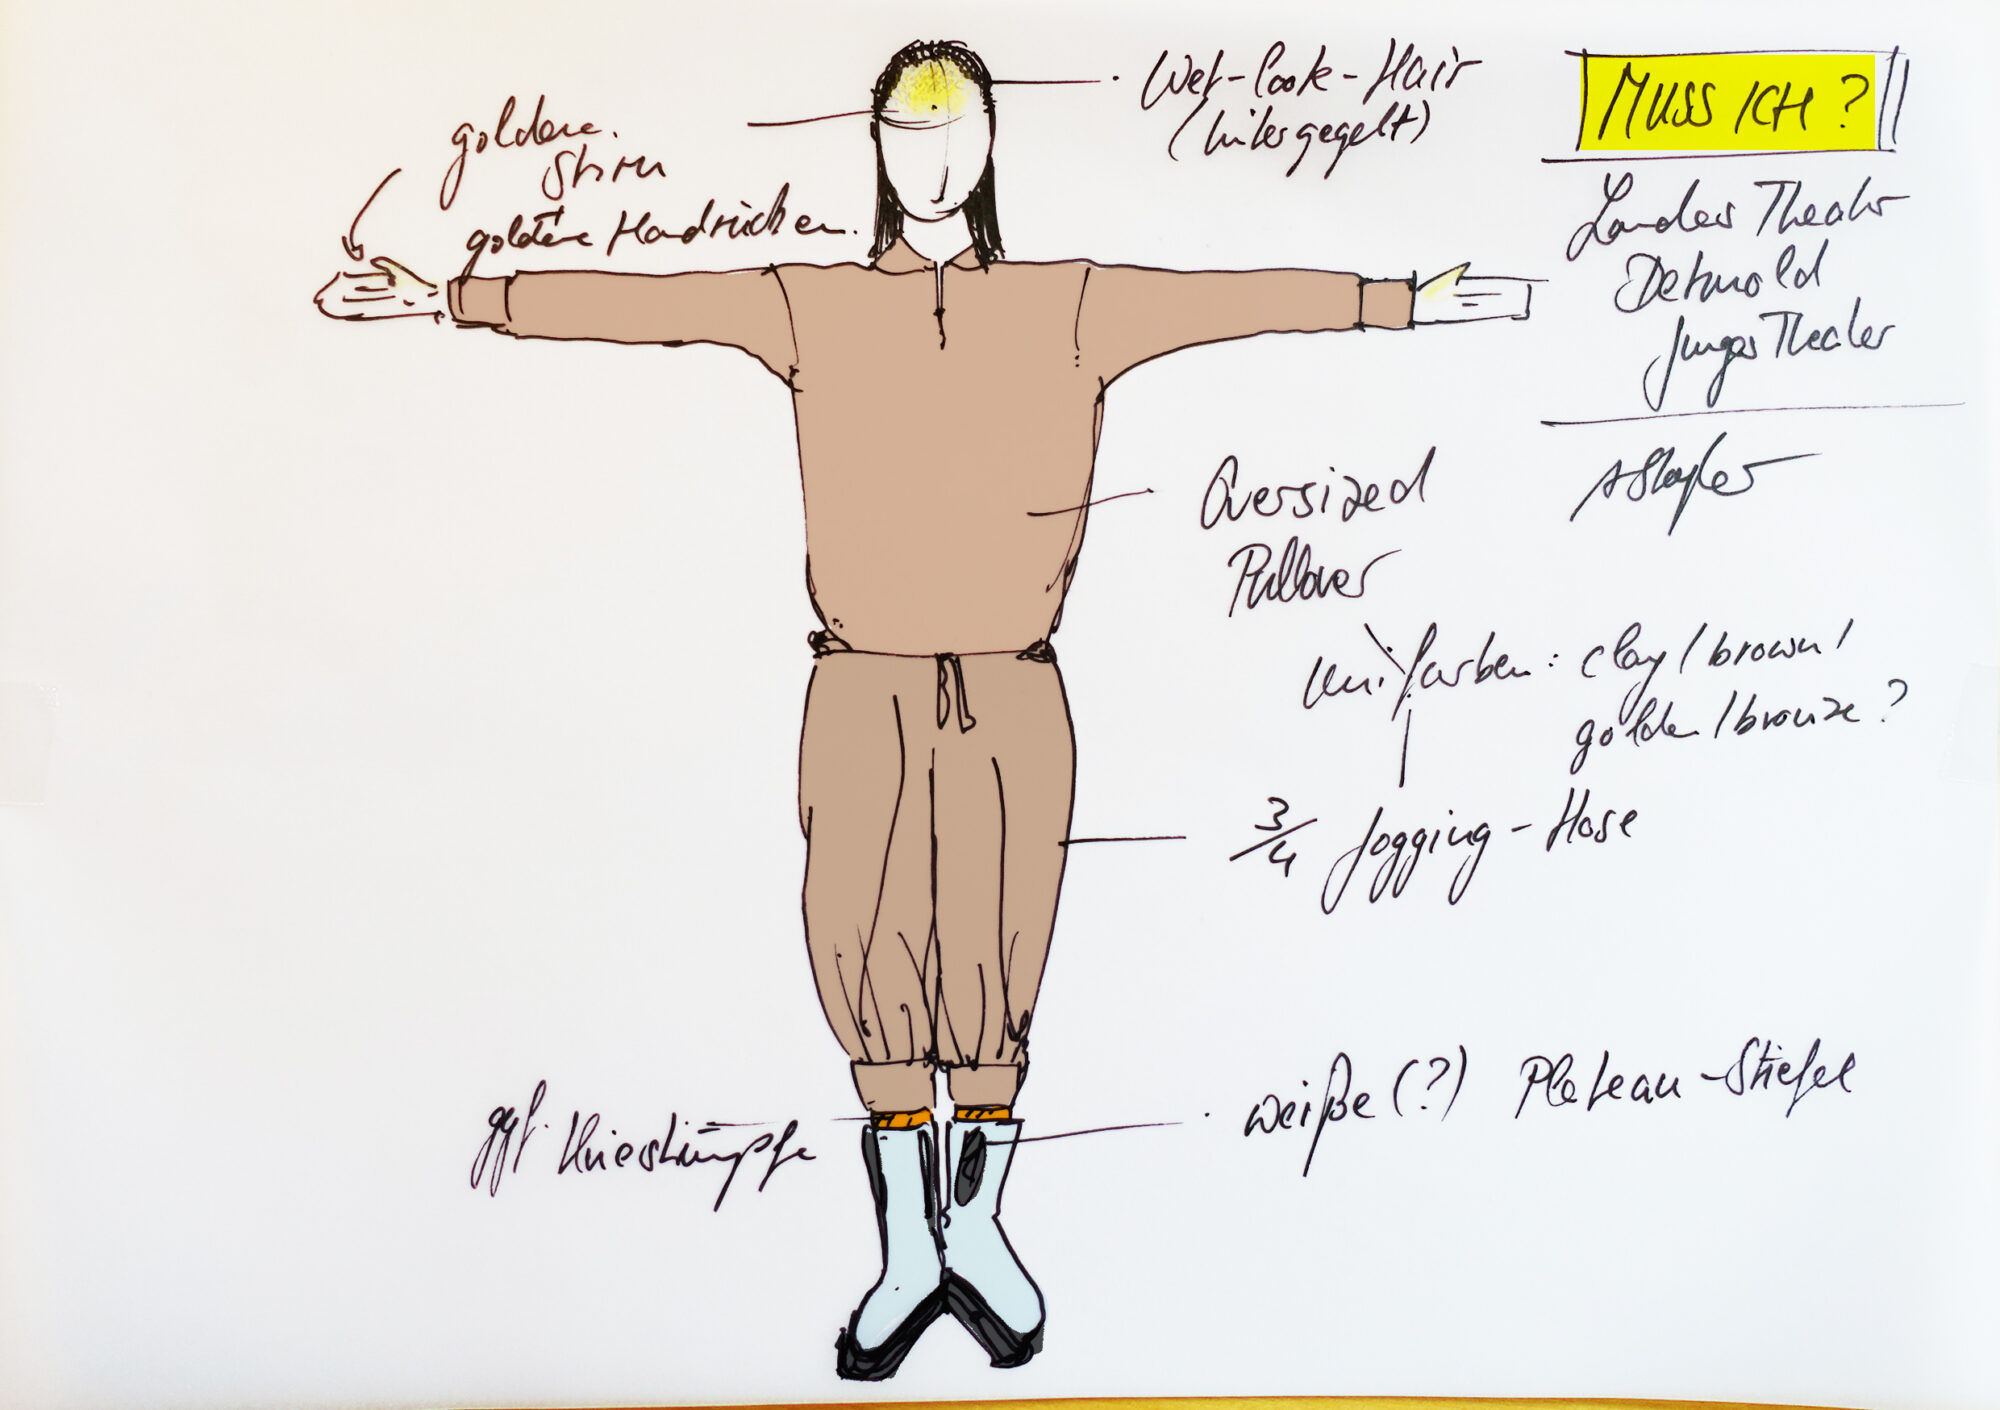 Wet-look-Hair
(hintergegelt)
MUSS ICH?
goldene
Stirn
goldene Handrücken
Landes Theater
Detmold
Junges Theater
Oversized
Pullover
unifarben: clay / brown /
golden / bronze?
3/4 Jogging-Hose
weiße (?) Plateau-Stiefel
ggf. Kniestrümpfe